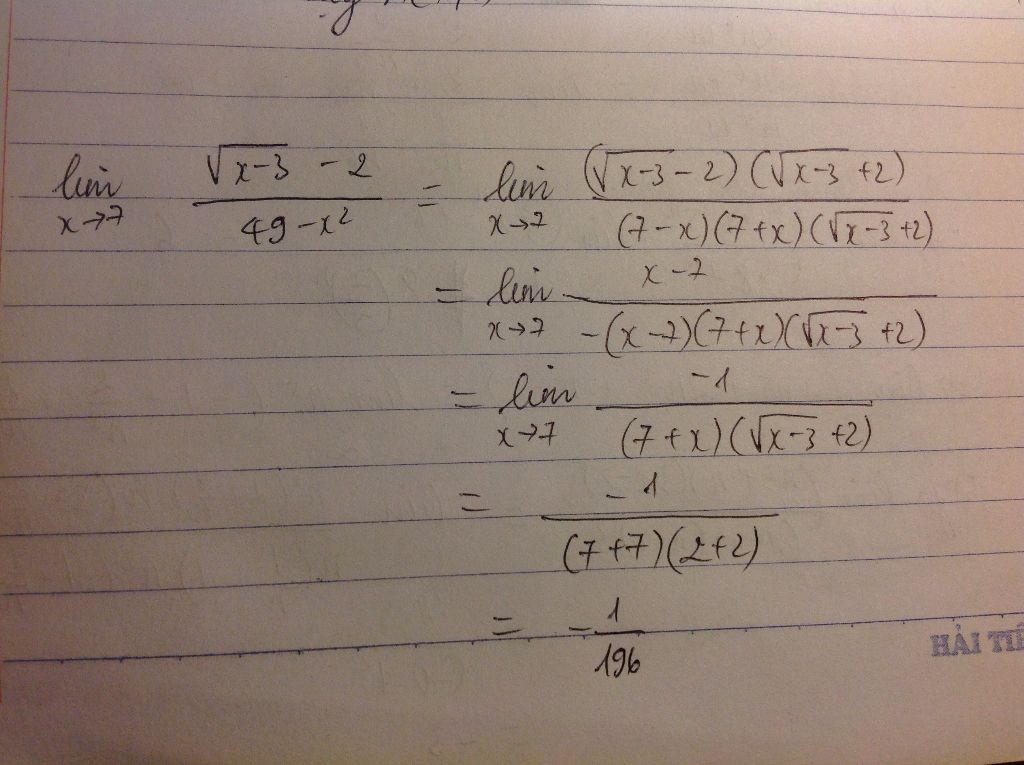 lim x→7 (√(x-3) - 2)/(49 - x²) = lim x→7 ((√(x-3) - 2)(√(x-3) + 2))/((7-x)(7+x)(√(x-3) + 2))
= lim x→7 (x-7)/(-(x-7)(7+x)(√(x-3) + 2))
= lim x→7 (-1)/((7+x)(√(x-3) + 2))
= (-1)/((7+7)(2+2))
= -1/196
HẢI